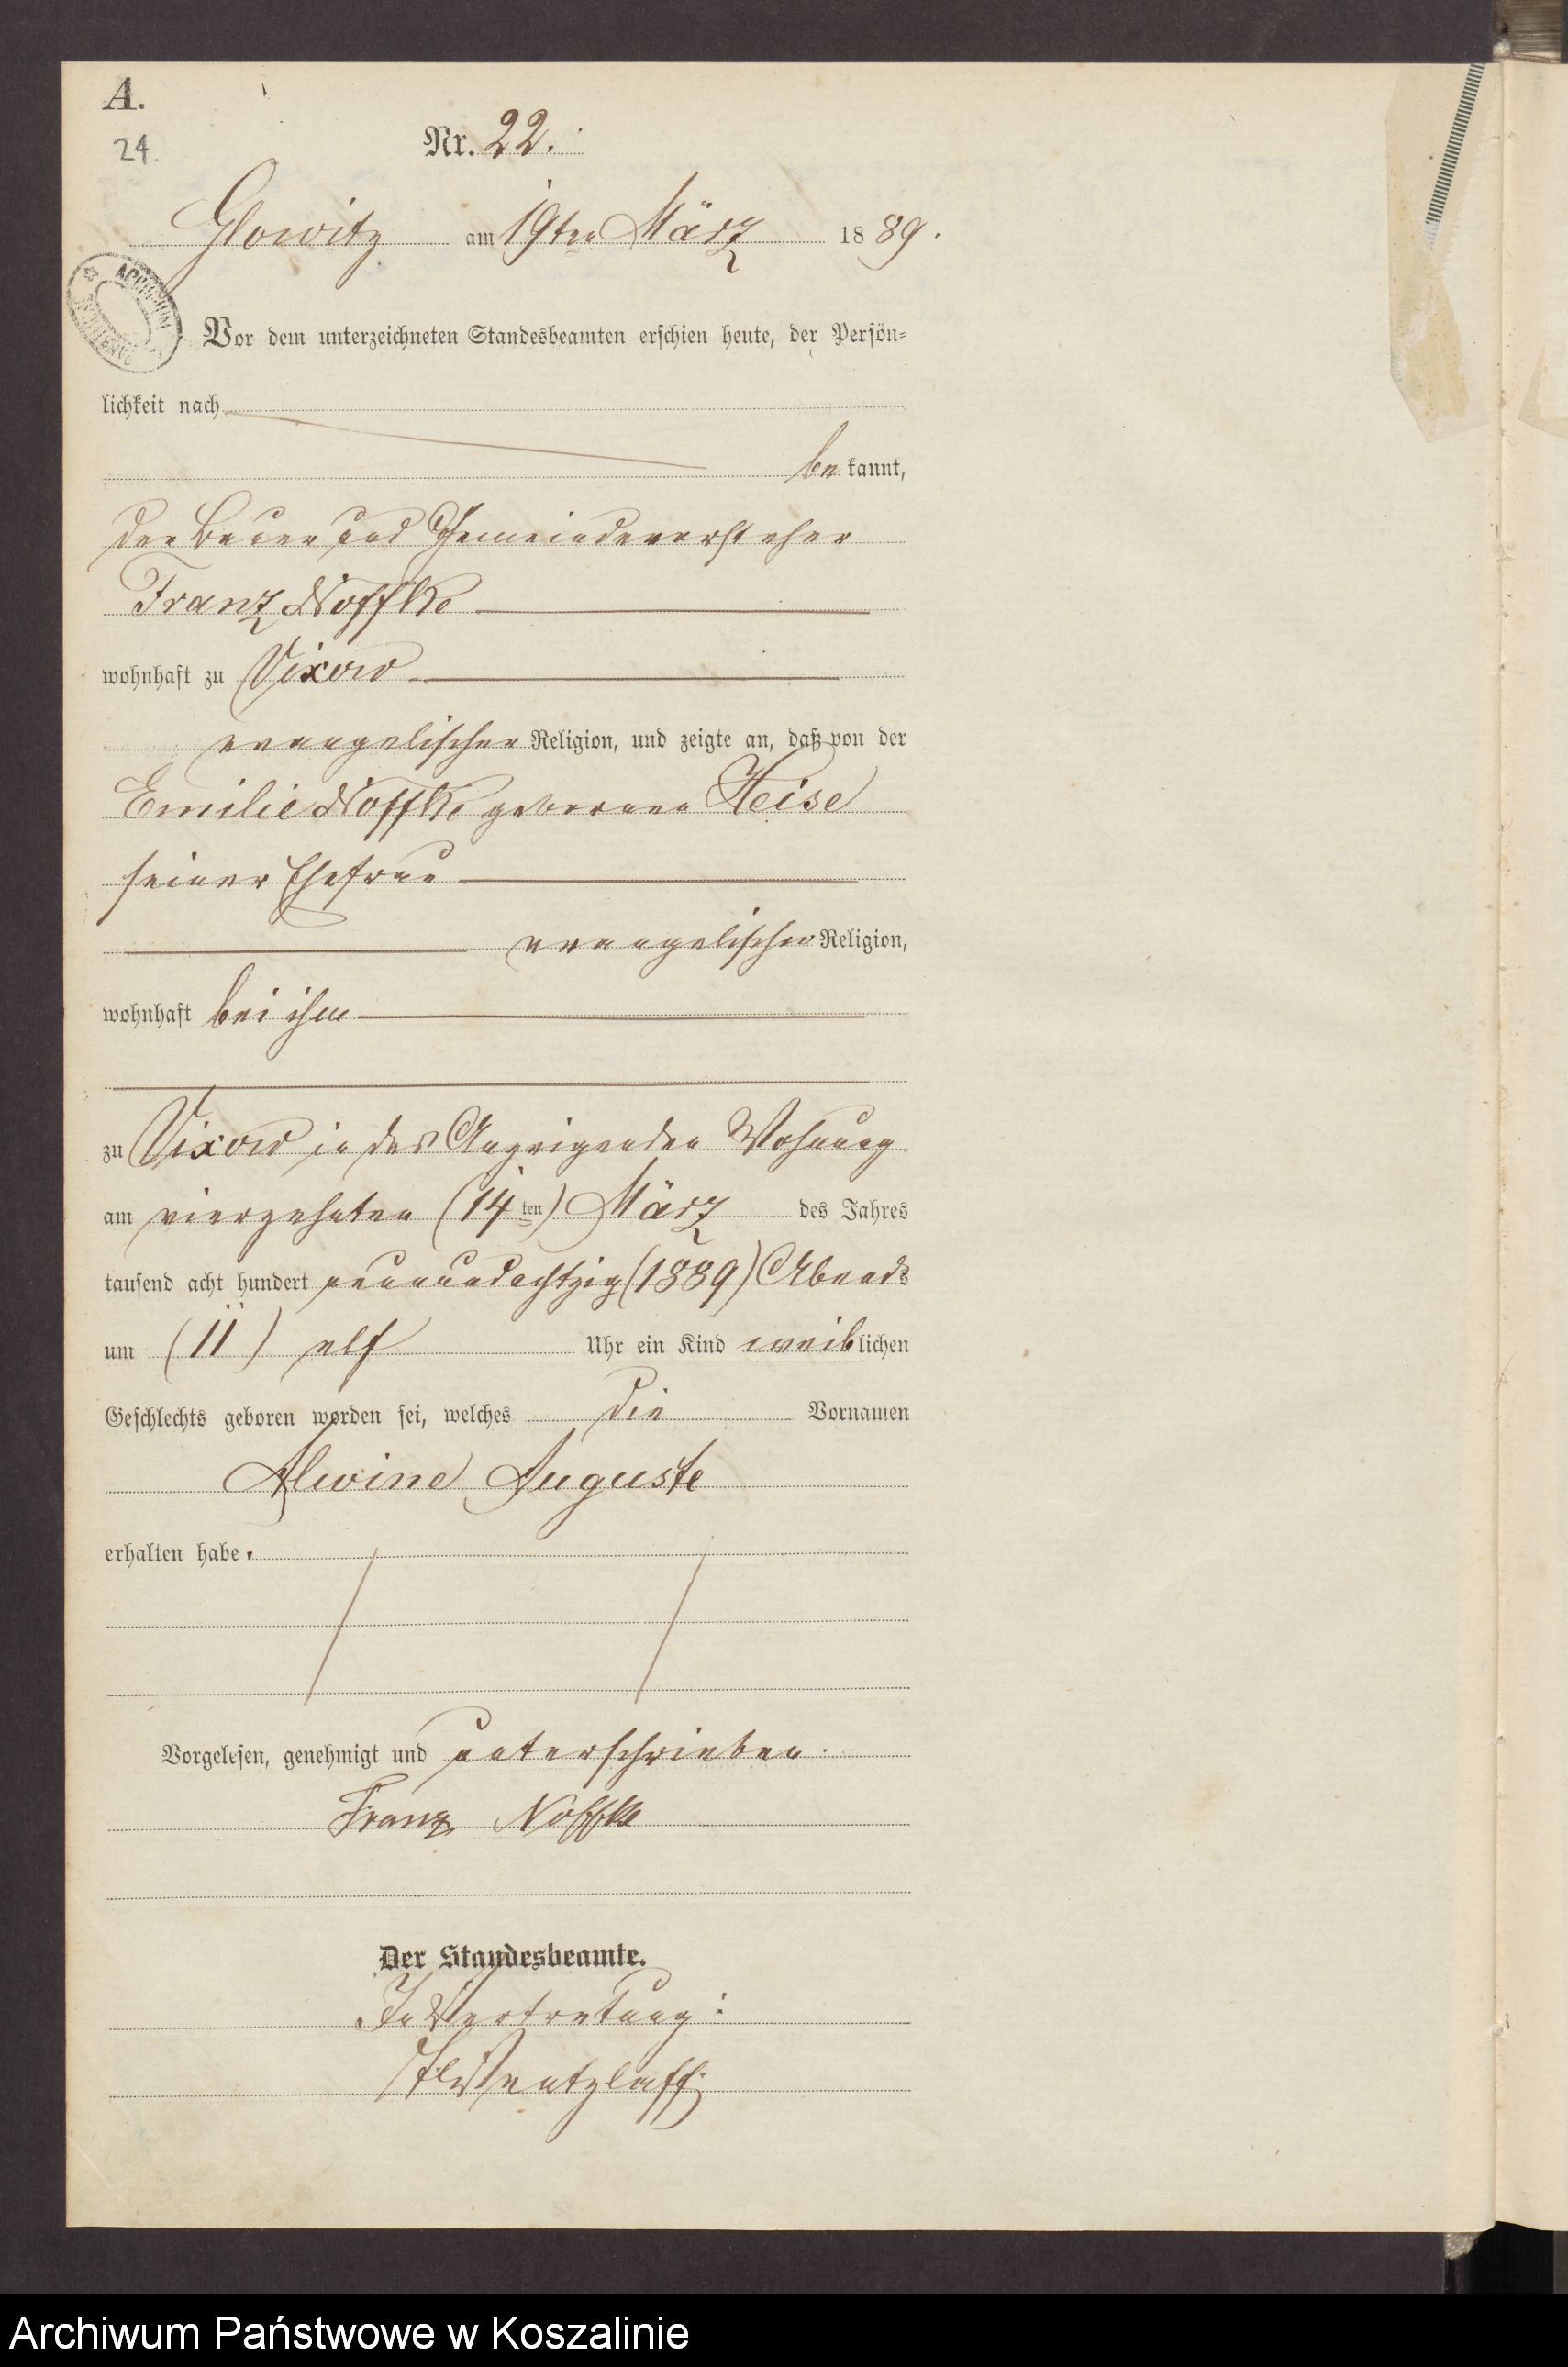 A.
24.
Nr. 22.
Glowitz am 19ten März 1889.
Vor dem unterzeichneten Standesbeamten erschien heute, der Persön-
lichkeit nach
bekannt,
der Bauer und Gemeindevorsteher
Franz Noffke
wohnhaft zu Vixow
evangelischer Religion, und zeigte an, daß von der
Emilie Noffke geborenen Heise
seiner Ehefrau
evangelischer Religion,
wohnhaft bei ihm
zu Vixow in des Anzeigenden Wohnung
am vierzehnten (14ten) März des Jahres
tausend acht hundert neunundachtzig (1889) Abends
um (11) elf Uhr ein Kind weiblichen
Geschlechts geboren worden sei, welches die Vornamen
Alwine Auguste
erhalten habe.
Vorgelesen, genehmigt und unterschrieben.
Franz Noffke
Der Standesbeamte.
In Vertretung:
Wentzlaff
Archiwum Państwowe w Koszalinie